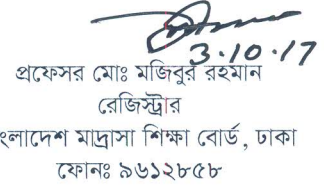 3.10.17
প্রফেসর মোঃ মজিবুর রহমান
রেজিস্ট্রার
ংলাদেশ মাদ্রাসা শিক্ষা বোর্ড, ঢাকা
ফোনঃ ৯৬১২৮৫৮